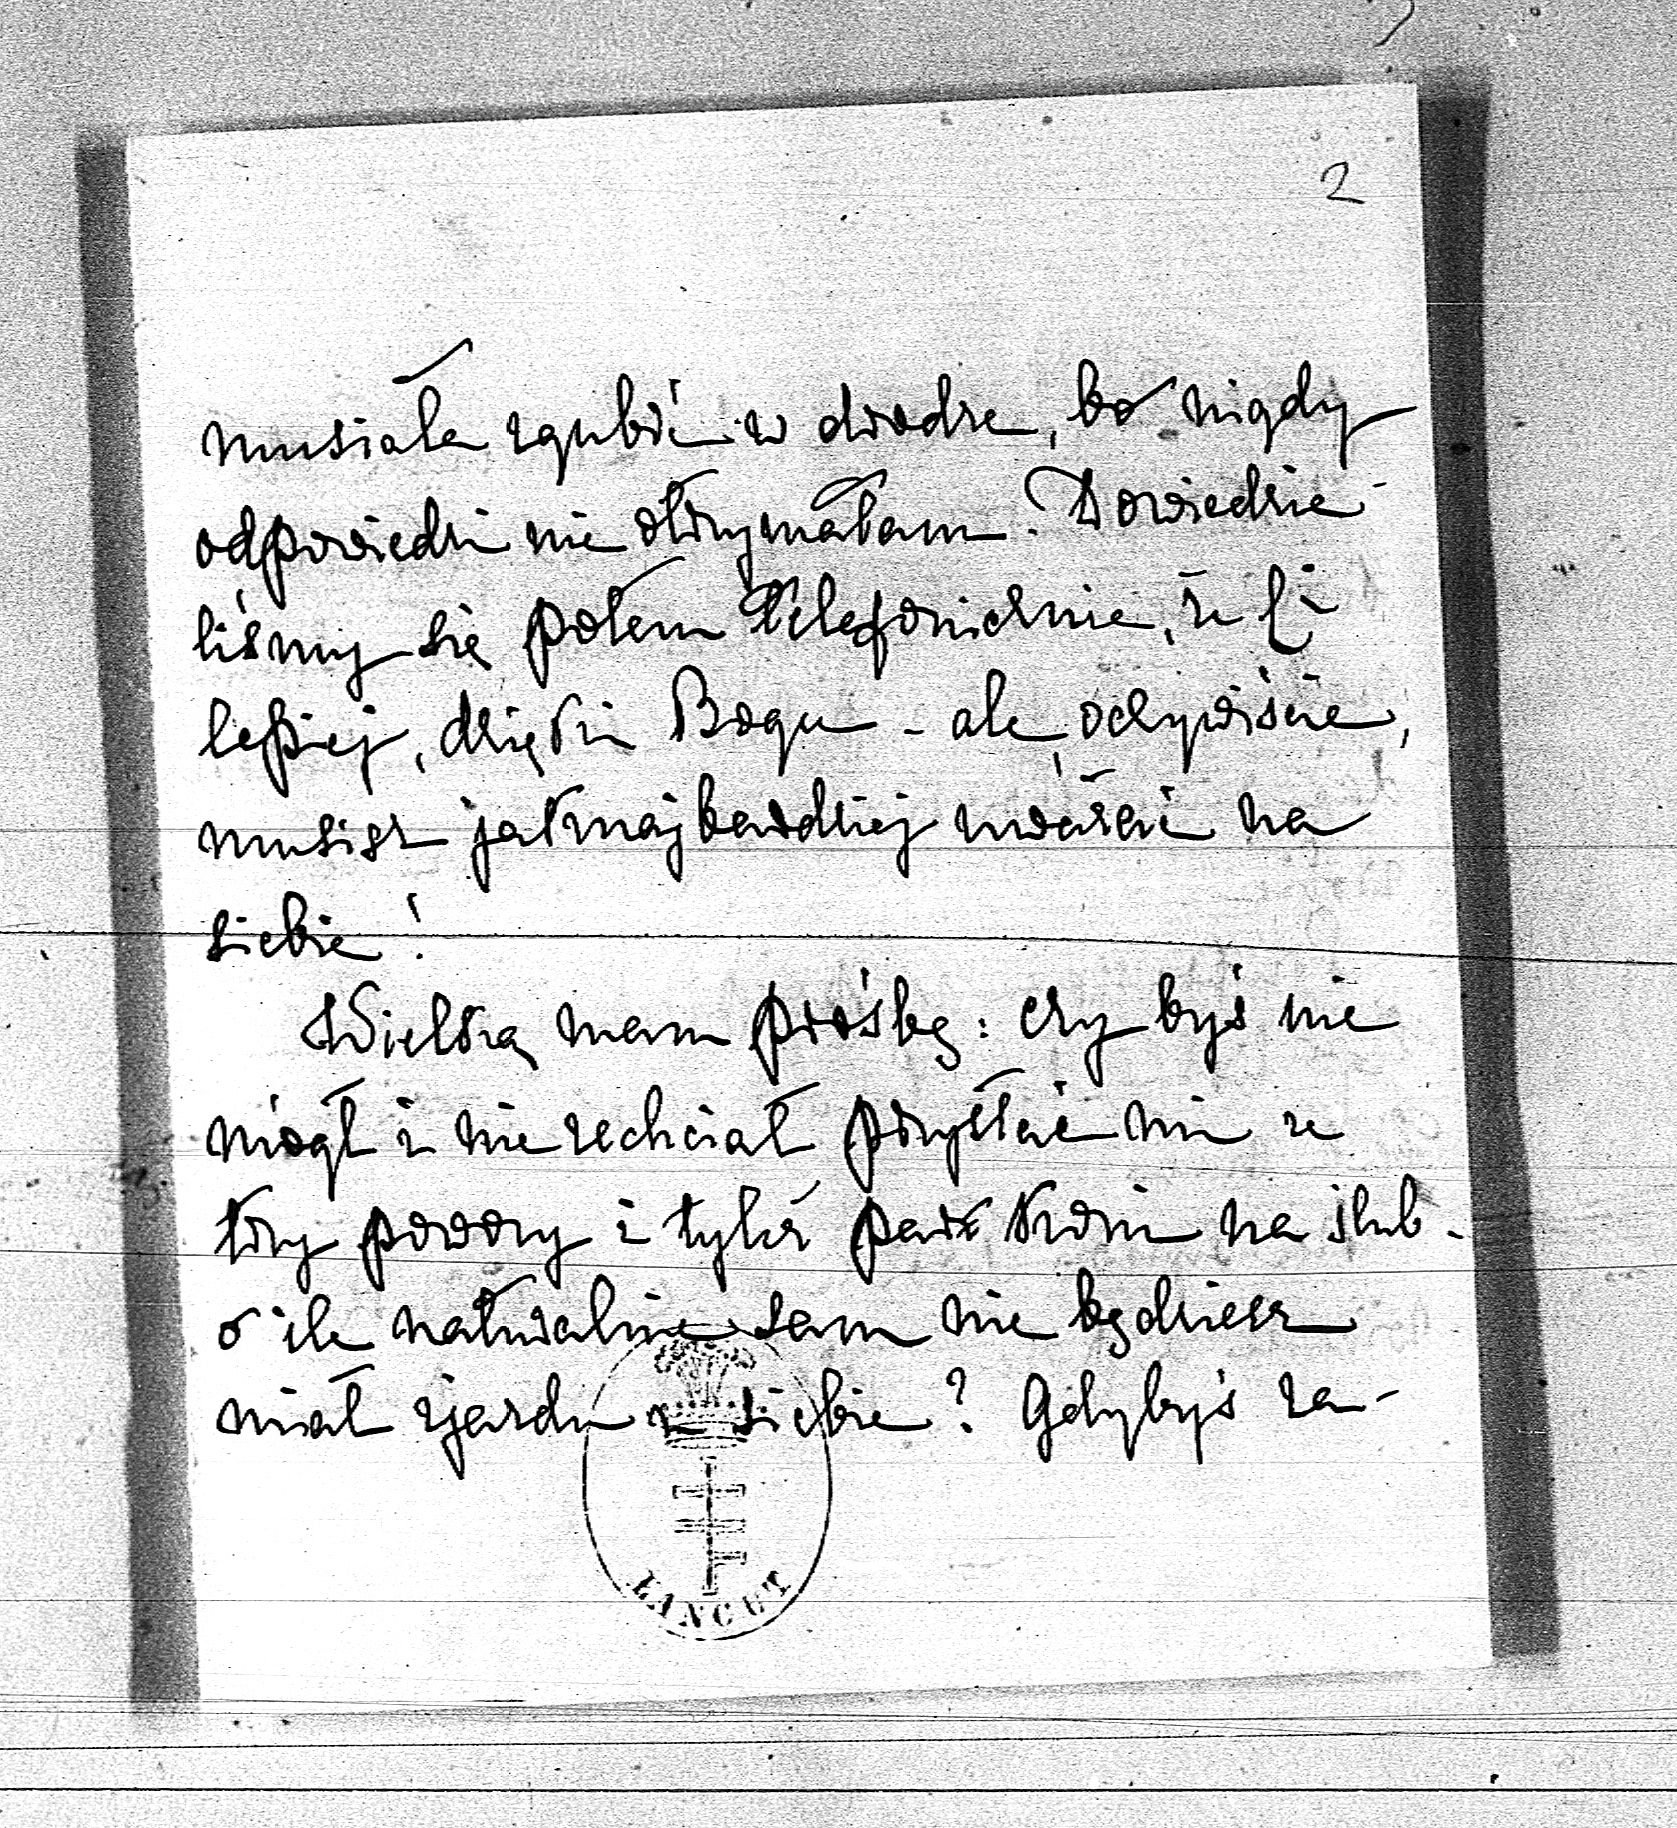 2
musiała zgubić w drodze, bo nigdy
odpowiedzi nie otrzymałam. Dowiedzie-
liśmy się potem telefonicznie, że Ci
lepiej, dzięki Bogu - ale, oczywiście,
musisz jaknajbardziej uważać na
siebie!
Wielką mam prośbę: czy byś nie
mógł i nie zechciał przysłać mi ze
trzy powozy i tyleż par koni na ślub -
o ile naturalnie sam nie będziesz
miał zjazdu u siebie? Gdybyś za-
ŁANCUT